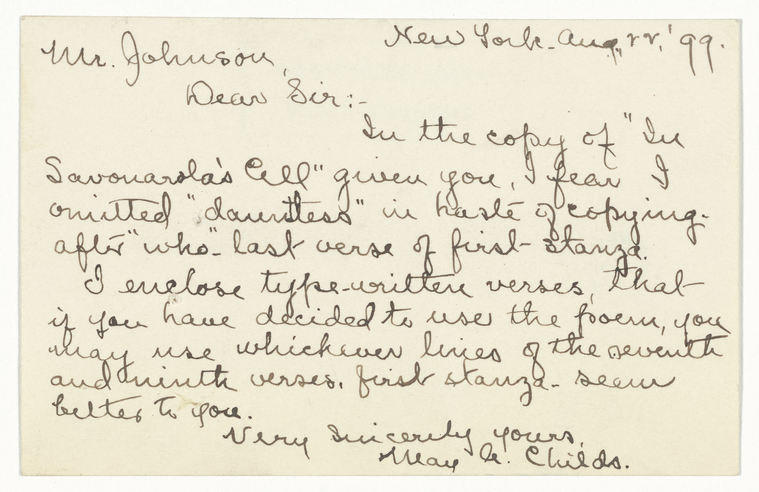 New York - Aug. 22, '99.
Mr. Johnson,
Dear Sir:-
In the copy of "In
Savonarola's Cell" given you, I fear I
omitted "dauntless" in haste of copying -
after "who" - last verse of first stanza.
I enclose type-written verses, that
if you have decided to use the poem, you
may use whichever lines of the seventh
and ninth verses, first stanza - seem
better to you.
Very Sincerely yours,
May Childs.